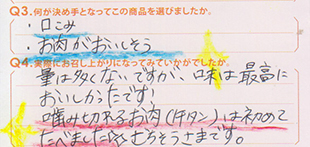 Q3.何が決め手となってこの商品を選びましたか。
・口こみ
・お肉がおいしそう
Q4.実際にお召し上がりになってみていかがでしたか。
量は多くないですが、味は最高に
おいしかったです!
噛み切れるお肉(牛タン)は初めて
たべました(笑)ごちそうさまです。